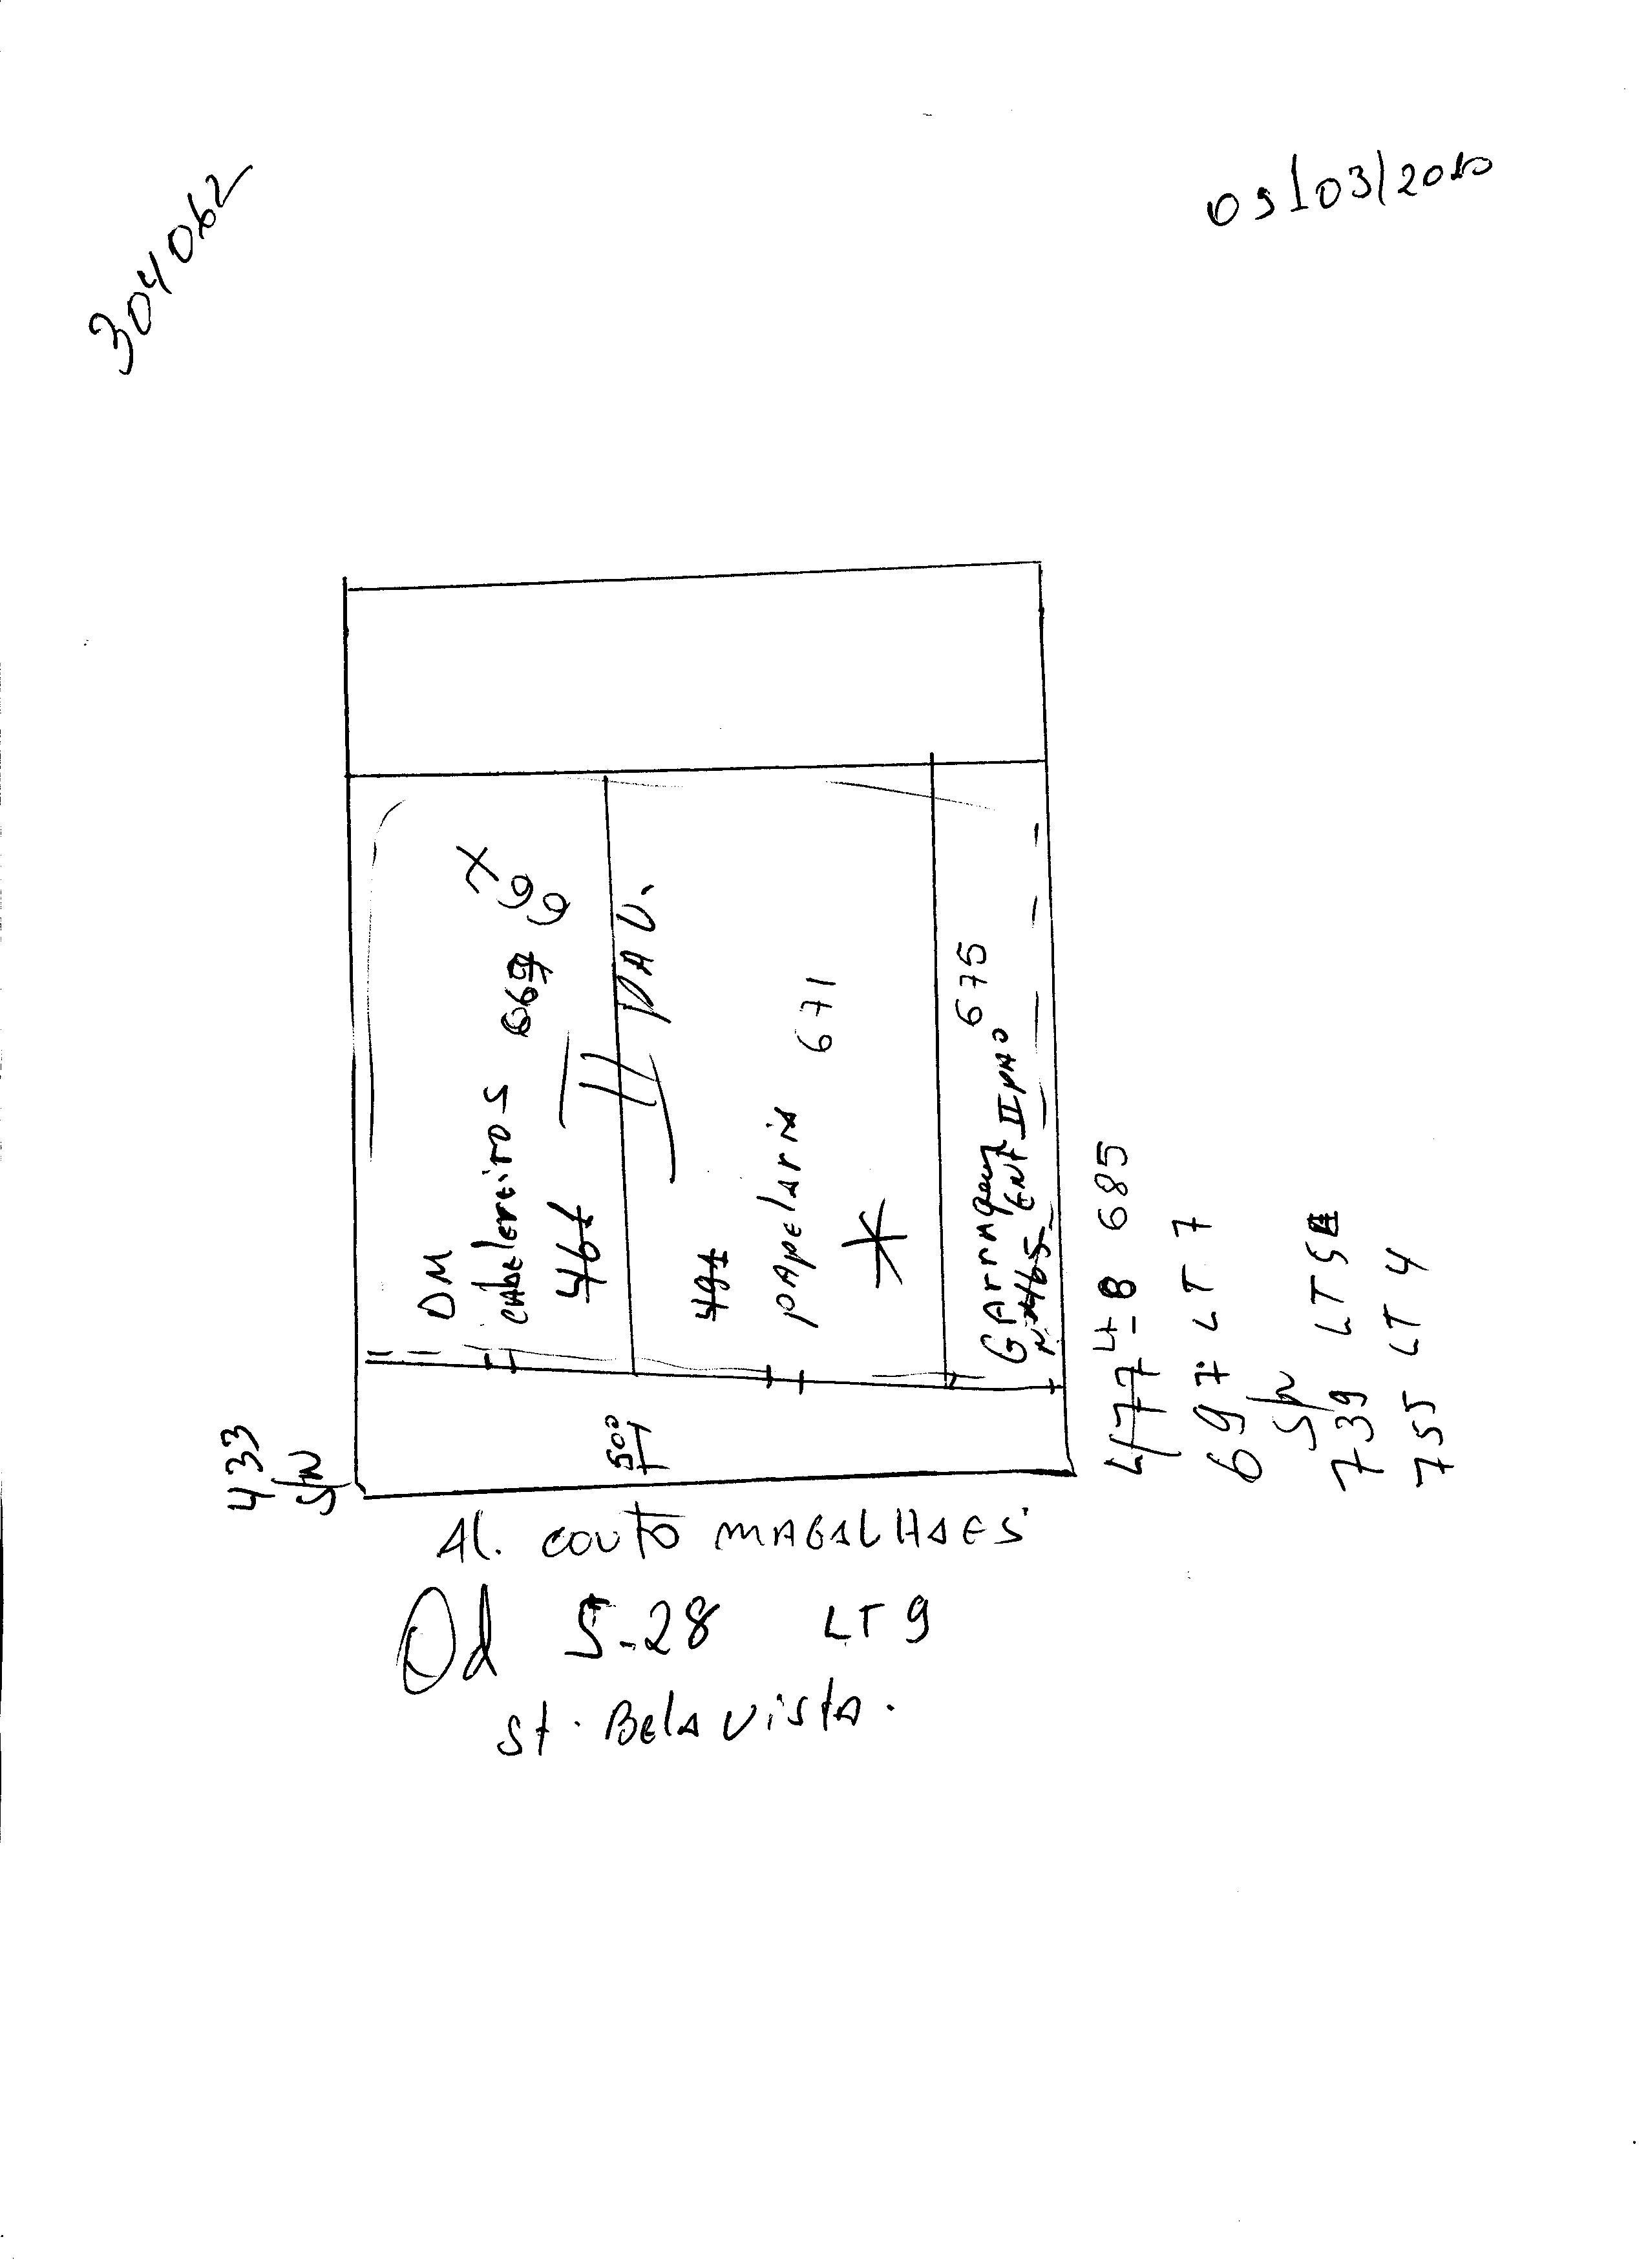 304062
09/03/2010
DM
cabeleireiros 669
461
II PAV.
491
papelaria 671
Garragem 675
N 465 Ent II PAO
500
433
S/N
477 Lt-8 685
697 LT 7
S/N
739 LT 5
755 LT 4
Al. couto MAGALHAES
Qd 5-28 LT 9
st. Bela vista.